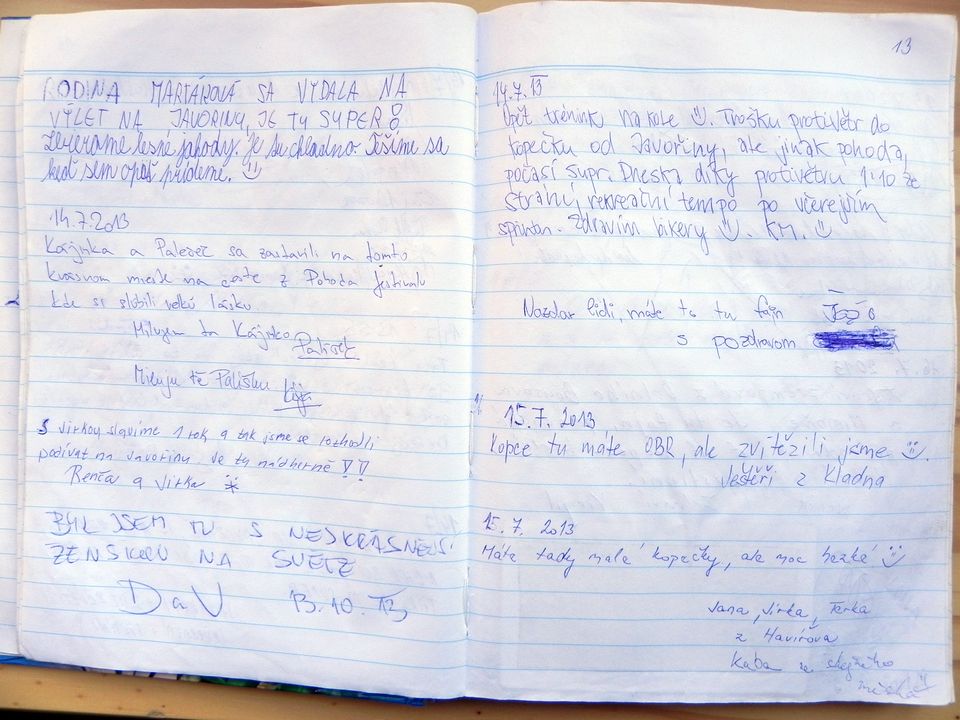 RODINA MARTÁKOVÁ SA VYDALA NA
VÝLET NA JAVORINU, JE TU SUPER!
Zbierame lesné jahody. Je tu chladno. Tešíme sa
keď sem opäť prídeme.
14.7.2013
Kájinka a Paleček sa zastavili na tomto
krásnom mieste na ceste z Pohoda festivalu
kde si slúbili velkú lásku
Milujem ťa Kájinko Paleček
Miluju tě Pališku Kája
S Jirkou slavíme 1 rok a tak jsme se rozhodli
podívat na Javořinu. Je tu nádherně !!
Renča a Jirka
BYL JSEM TU S NEJKRÁSNĚJŠÍ
ŽENSKOU NA SVĚTĚ
DaV 13.10.13
13
14.7.13
Opět trénink na kole. Trošku protivětr do
kopečku od Javořiny, ale jinak pohoda,
počasí supr. Dneska díky protivětru 1:10 ze
Strání, rekreační tempo po včerejším
Zdravím bikery. KM.
Nazdar lidi, máte to tu fajn
s pozdravom
15.7. 2013
Kopce tu máte OBR, ale zvítězili jsme.
Ještěři z Kladna
15.7. 2013
Máte tady malé kopečky, ale moc hezké
Jana, Jirka, Terka
z Havířova
Kuba ze stejného